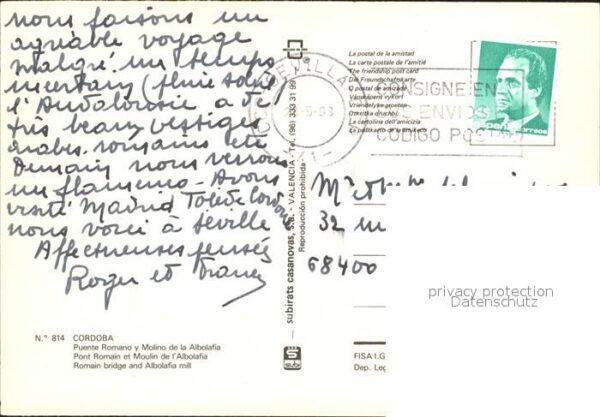 nous faisons un
agréable voyage
malgré un temps
incertain (pluie soleil
l'Andalousie a de
très beaux vestiges
arabes. romains etc
Demain nous verrons
un flamenco. Avons
visité Madrid Tolède Cordoue
nous voici à Séville
Affectueuses pensées
Roger et
N.° 814 CORDOBA
Puente Romano y Molino de la Albolafia
Pont Romain et Moulin de l'Albolafia
Roman bridge and Albolafia mill
subirats casanovas, s.a. - VALENCIA - Tel. (96) 333 31 95
Reproducción prohibida
subi
SEVILLA
5-93
CONSIGNE EN
ENVIOS
CODIGO POSTAL
La postal de la amistad
La carte postale de l'amitié
The friendship post card
Die Freundschaftskarte
O postal de amizade
Vänskapens vykort
Vriendelijke groeten
La cartolina dell'amicizia
correos
32
68400
FISA I.G
Dep. Leg
privacy protection
Datenschutz